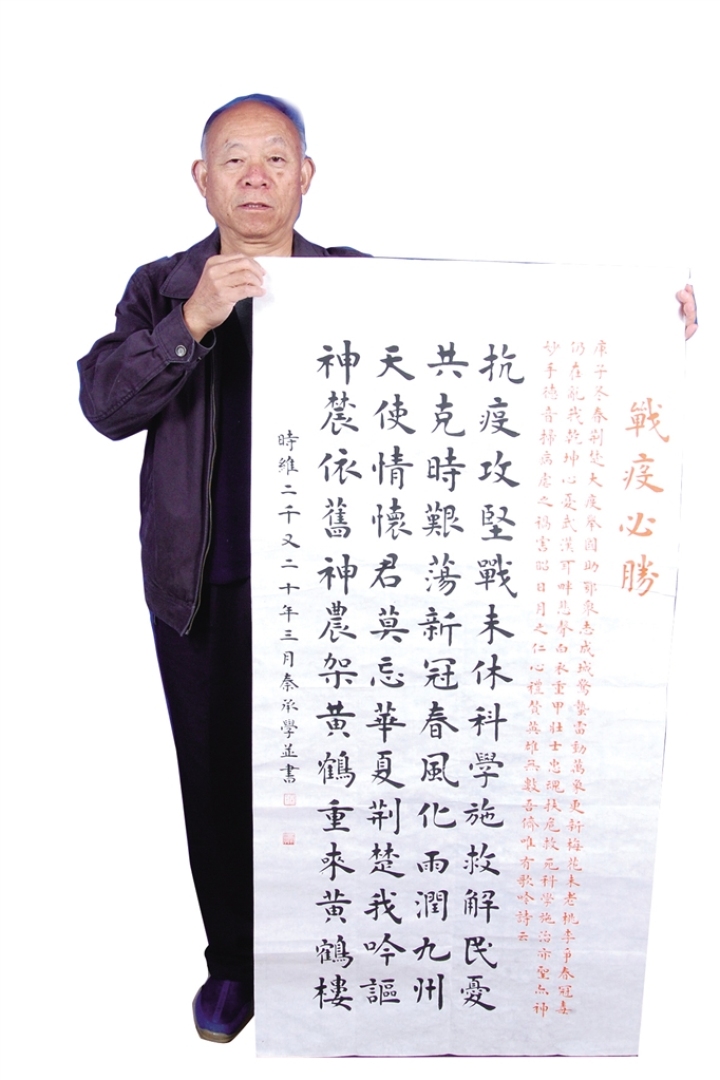 戰疫必勝
庚子冬春荊楚大疫舉國助鄂眾志成城驚蟄雷動萬象更新梅花未老桃李爭春冠毒
仍在亂我乾坤心憂武漢可畔悲而重甲壯士忠魂扶危救死科學施治亦聖亦神
妙手德音掃病之禍害昭日月之仁心禮贊英雄無數吾儕唯有歌吟詩云
抗疫攻堅戰未休科學施救解民憂
共克時艱蕩新冠春風化雨潤九州
天使情懷君莫忘華夏荊楚我吟謳
神農依舊神農架黃鶴重來黃鶴樓
時維二千又二十年三月秦承學並書